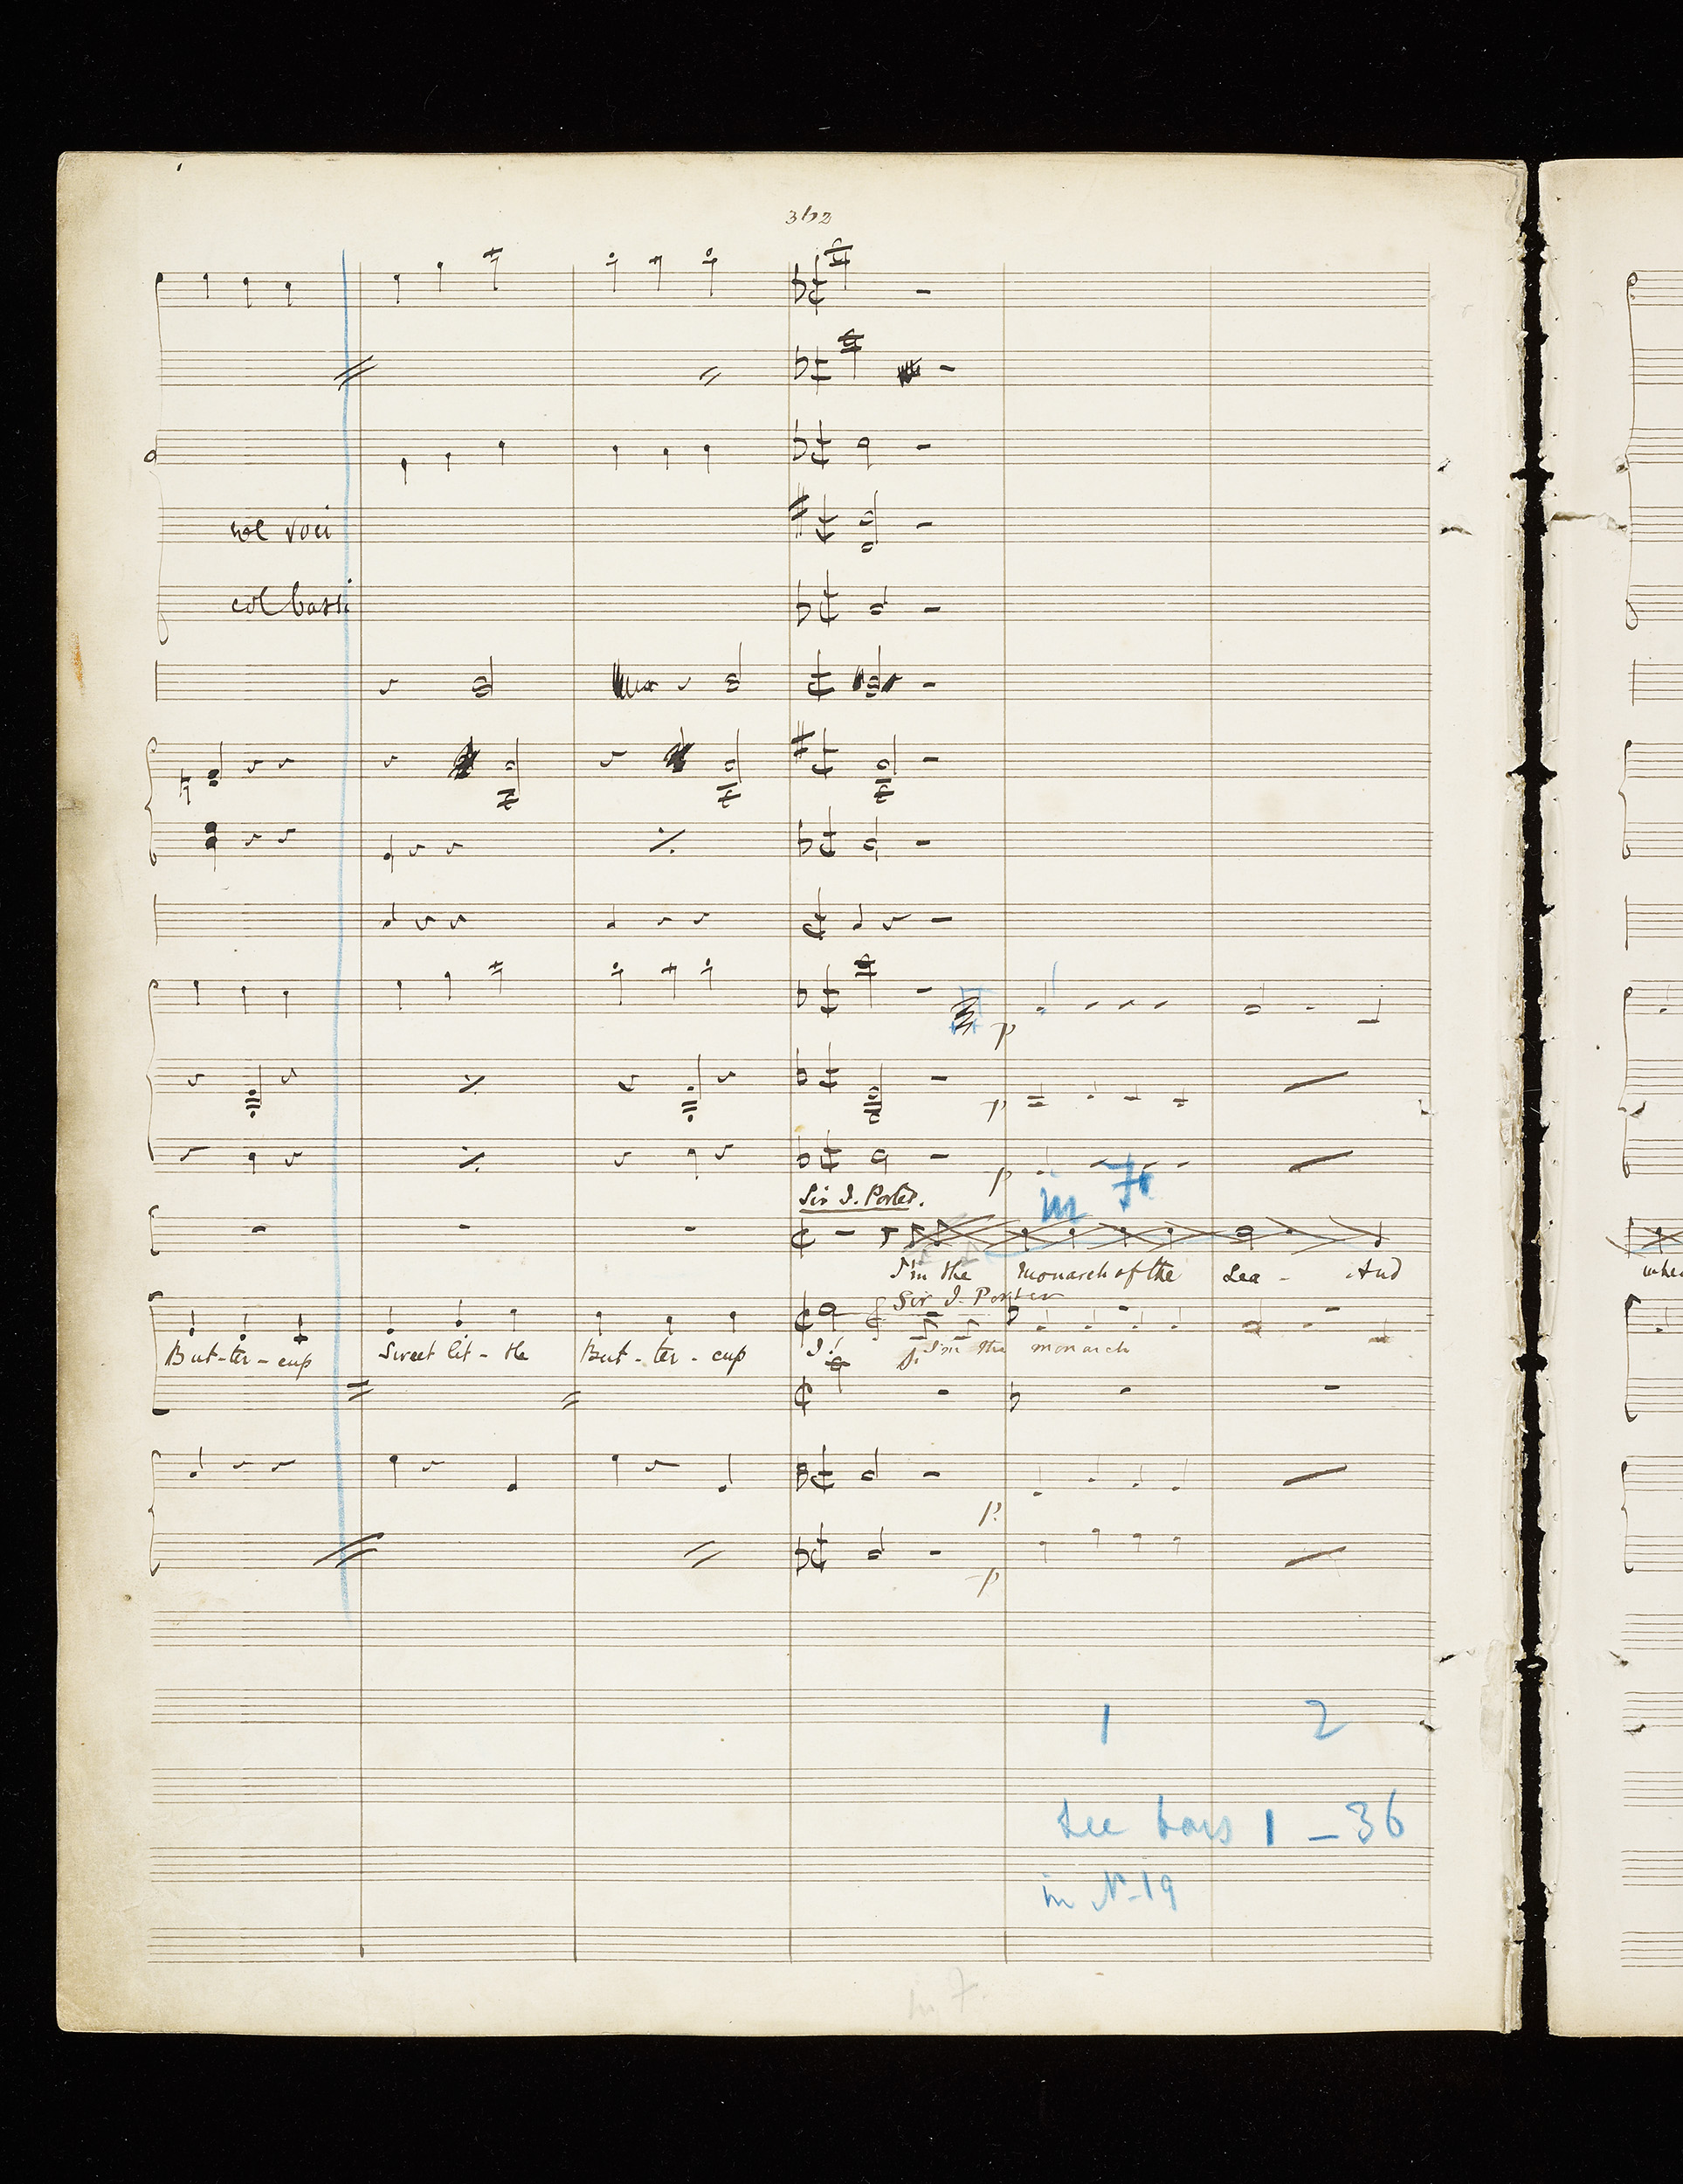 362
col voci
col bassi
p
p
p
Sir J. Porter.
in F
I'm the monarch of the Sea - And
whe
Sir J. Porter
But-ter-cup Sweet lit-tle But-ter-cup I! I'm the monarch
p
p
1 2
See bars 1 - 36
in No 19
in F.